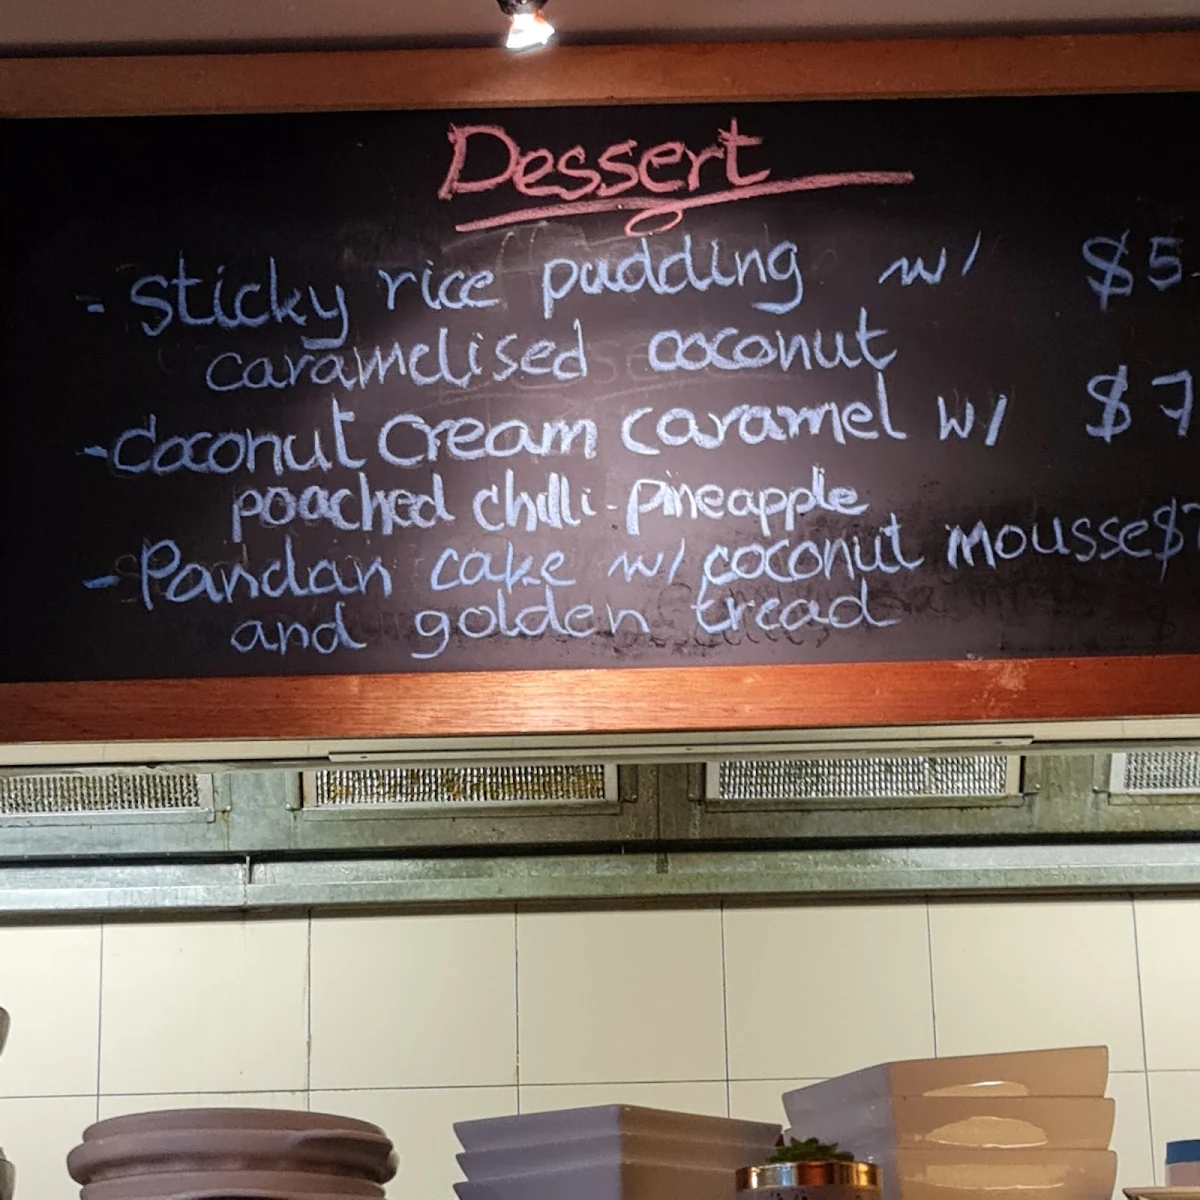 Dessert
- Sticky rice pudding w/ $5.
caramelised coconut
- Coconut cream caramel w/ $7
poached chilli pineapple
- Pandan cake w/ coconut mousse $7
and golden tread